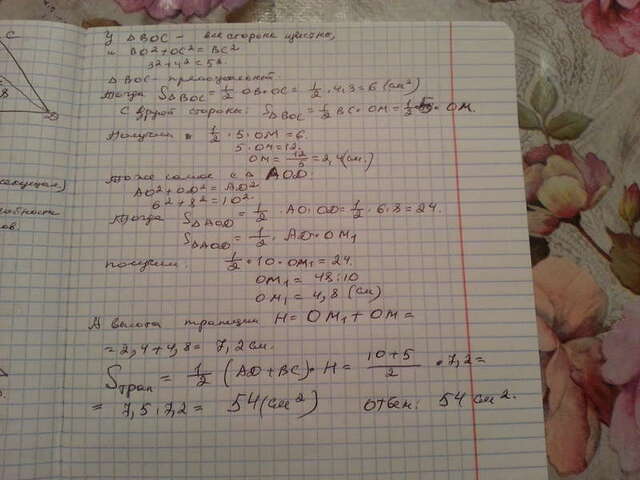 C
8
D
секущая,)
добности
ов.
У △BOC - все стороны известны,
и BO²+OC²=BC²
3²+4²=5².
△BOC - прямоугольный.
Тогда S△BOC = 1/2 OB·OC = 1/2·4·3=6 (см²)
С другой стороны: S△BOC = 1/2 BC·OM = 1/2·5·OM.
Получим 1/2·5·OM=6.
5·OM=12.
OM = 12/5 = 2,4(см.)
Тоже самое с △AOD:
AO²+OD²=AD²
6²+8²=10².
Тогда S△AOD = 1/2·AO·OD = 1/2·6·8=24.
S△AOD = 1/2·AD·OM₁
получим: 1/2·10·OM₁=24.
OM₁ = 48:10
OM₁ = 4,8 (см)
А высота трапеции H = OM₁+OM =
=2,4+4,8= 7,2 см.
Sтрап = 1/2 (AD+BC)·H = 10+5/2 ·7,2=
= 7,5·7,2= 54(см²) ответ: 54 см².